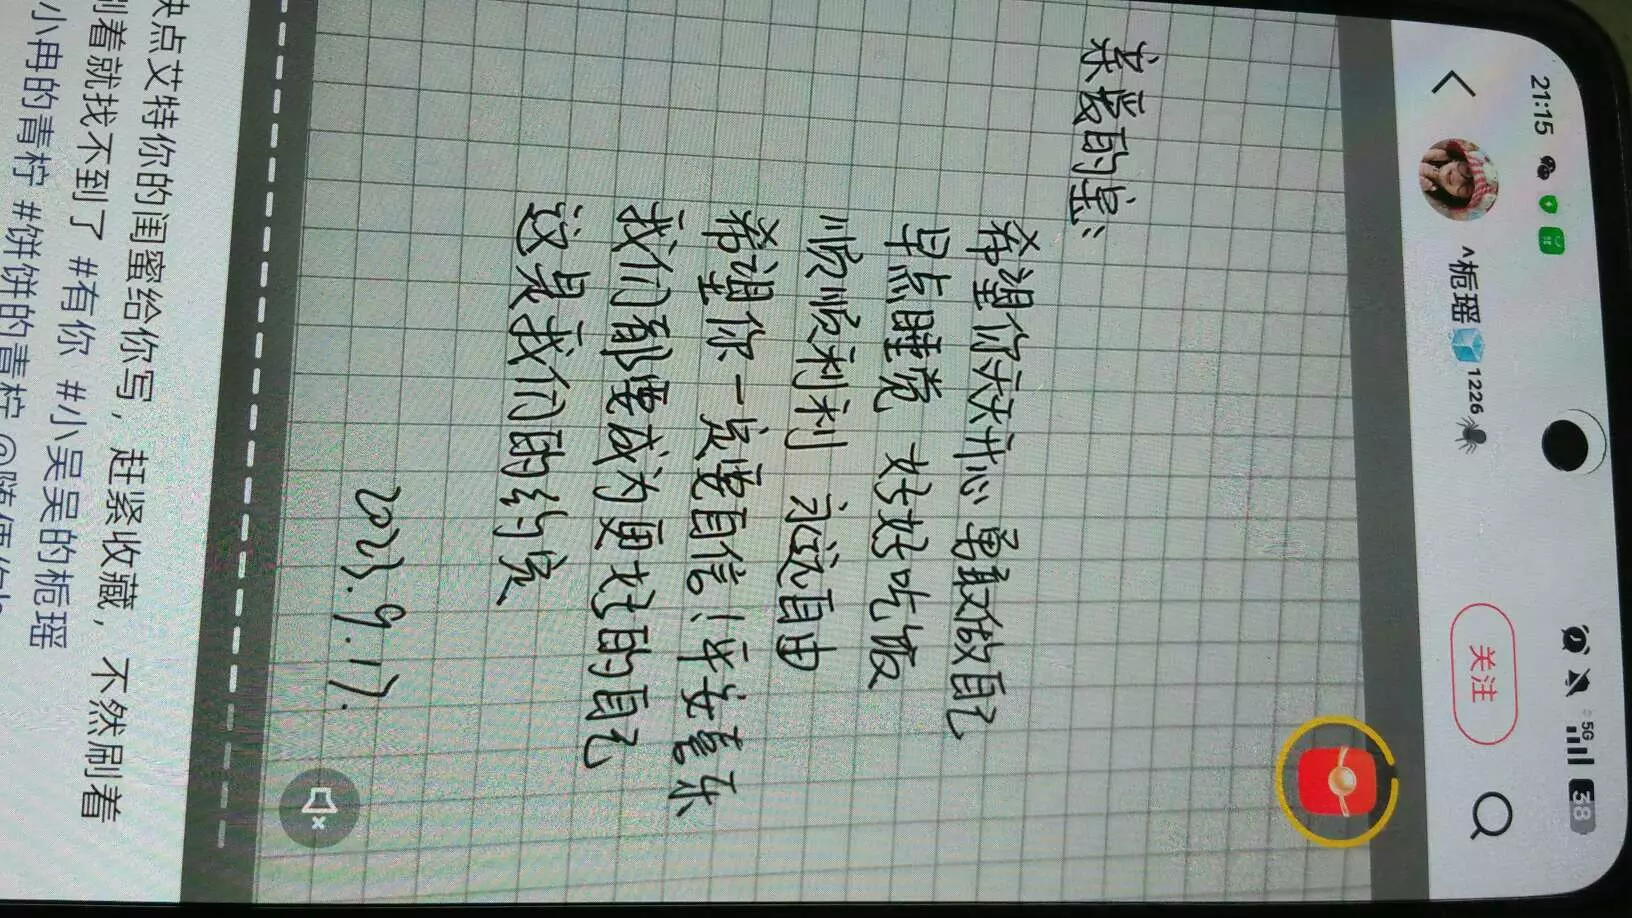 21:15
5G
38
^栀瑶🧊1226🕷
关注
亲爱的宝:
希望你天天开心 勇敢做自己
早点睡觉 好好吃饭
顺顺利利 永远自由
希望你一定要自信!平安喜乐
我们都要成为更好的自己
这是我们的约定
2023.9.17.
快点艾特你的闺蜜给你写,赶紧收藏,不然刷着
刷着就找不到了 #有你 #小吴吴的栀瑶
小冉的青柠 #饼饼的青柠